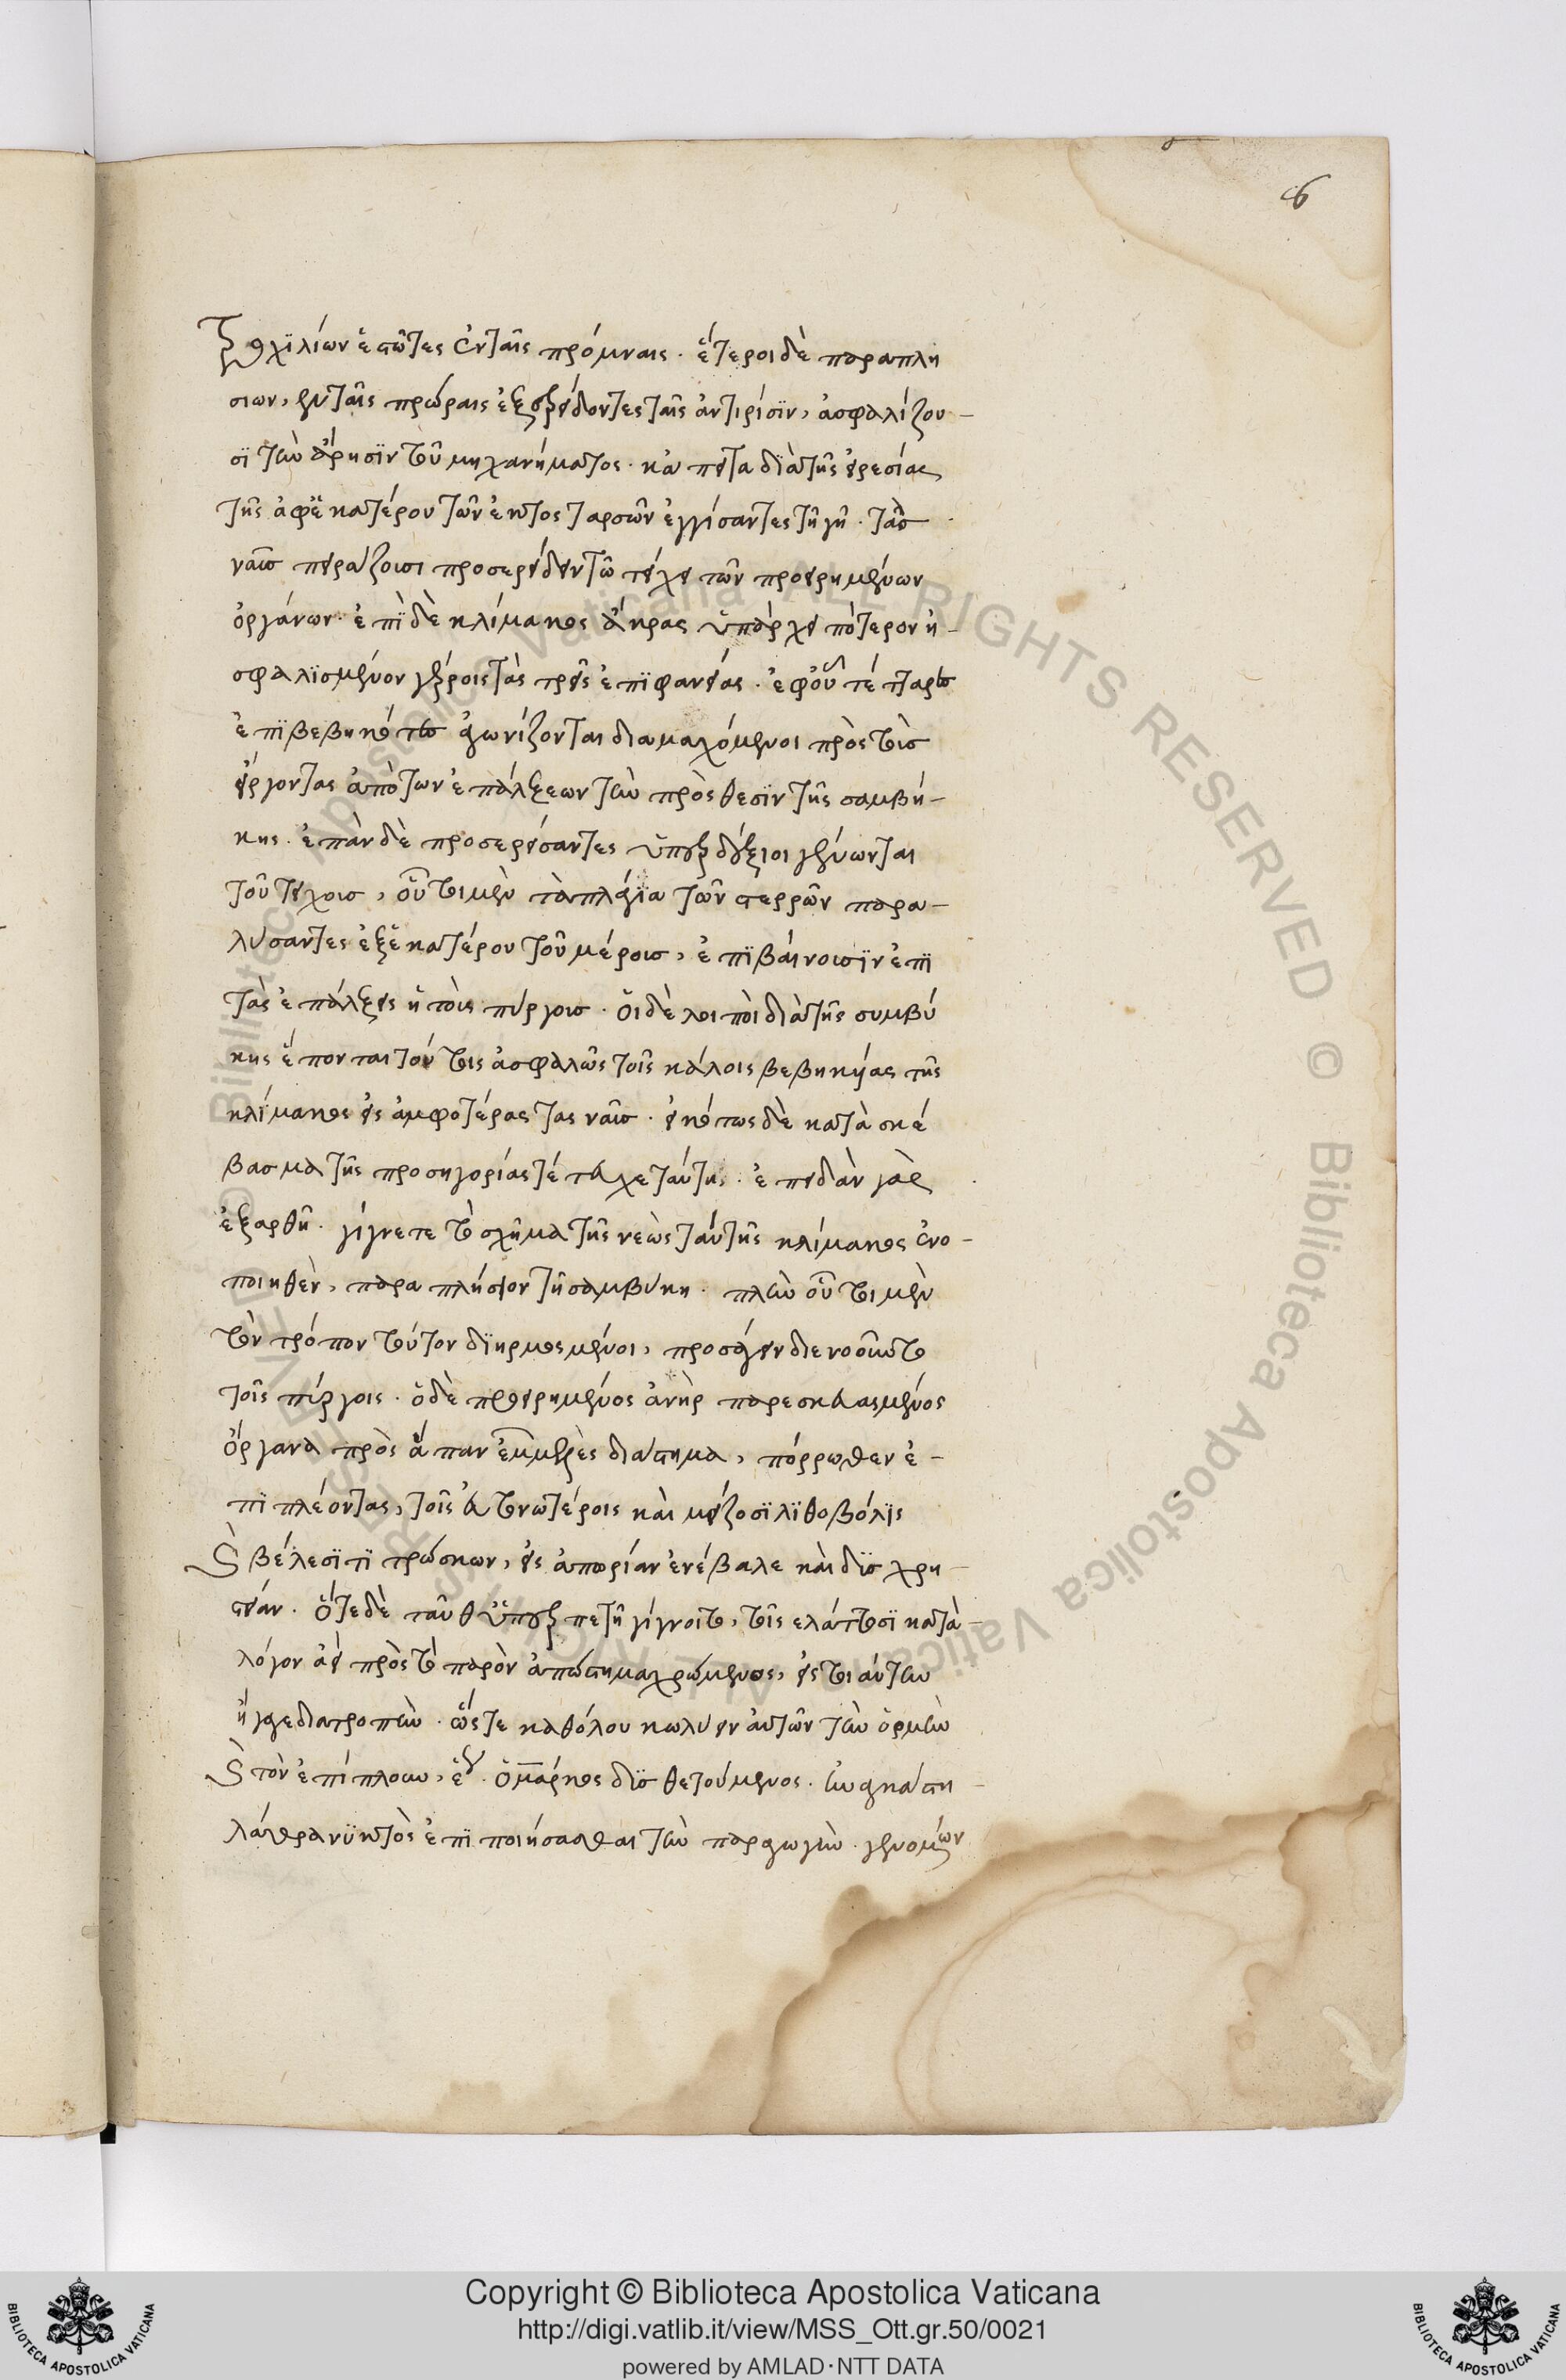 6
τροχϊλίων ἑστῶτες ἐν ταῖς πρόμναις. ἕτεροι δὲ παραπλη
σιων, ἐν ταῖς πρώραις ἐξερείδοντες ταῖς ἀντιρίσϊν, ἀσφαλίζου-
σϊ τὴν ἄρησϊν τοῦ μηχανήματος. κἀπειτα διὰ τῆς εἰρεσίας
τῆς ἀφ ἑκατέρου τῶν ἐκτος ταρσῶν ἐγγίσαντες τῆ γῆ. τὰς
ναῦσ πειράζουσι προσερείδειν τῶ τείχει τῶν προειρημένων
ὀργάνων. ἐπϊ δὲ κλίμακος ἄκρας ὑπάρχει πότερον ἠ-
σφαλϊσμένον γέροις τὰς τρεῖς ἐπϊφανείας. ἐφ οὗ τέτταρες
ἐπϊβεβηκότες ἀγωνίζονται διαμαχόμενοι πρὸς τοὺσ
εἴργοντας ἀπὸ των ἐπάλξεων τὴν πρὸς θεσϊν τῆς σαμβύ-
κης. ἐπὰν δὲ προσερείσαντες ὑπερδέξιοι γένωνται
τοῦ τείχουσ, οὗτοι μὲν τὰ πλάγϊα τῶν στερρῶν παρα-
λύσαντες ἐξ ἑκατέρου τοῦ μέρουσ, ἐπϊβαίνουσϊν ἐπϊ
τὰς ἐπάλξεις ἢ τοὺς πύργουσ. ὁι δὲ λοιποὶ διὰ τῆς συμβύ
κης ἕπονται τούτοις ἀσφαλῶς τοῖς κάλοις βεβηκυίας τῆς
κλίμακος εἰς ἀμφοτέρας τας ναῦσ. εἰκότως δὲ κατὰ σκέ
βασμα τῆς προσηγορίας τέτευχε ταύτης. ἐπειδὰν γὰρ
ἐξαρθῆ. γίγνετε τὸ σχῆμα τῆς νεὼς ταύτῆς κλίμακος ἑνο-
ποιηθὲν, παραπλήσϊον τῆ σαμβύκη. πλὴν οὗτοι μὲν
τὸν τρόπον τοῦτον δϊηρμοσμένοι, προσάγειν διενοοῦντο
τοῖς πύργοις. ὁ δὲ προειρημένος ἀνὴρ παρεσκευασμένος
ὄργανα πρὸς ἅπαν ἐμμετρὲς διάστημα, πόρρωθεν ἐ-
πϊπλέοντας, τοῖς εὐτονωτέροις καὶ μείζοσϊ λϊθοβόλϊς
καὶ βέλεσϊ τϊτρώσκων, εἰς ἀπορίαν ἐνέβαλε καὶ δϋσχρη-
στείαν. ὅτε δὲ ταῦθ ὑπερπετῆ γίγνοιτο, τοῖς ελάττοσϊ κατὰ
λόγον ἀεὶ πρὸς τὸ παρὸν ἀπόστημα χρώμενος, εἰς τοιαύτην
ἤγαγε διατροπὴν. ὥστε καθόλου κωλύειν αὐτῶν τὴν ὁρμὴν
καὶ τὸν ἐπίπλουν, ἕως. ὁ μάρκος δϋσθετούμενος. ἠναγκάστη
λάθρα νϋκτὸς ἐπϊποιήσασθαι τὴν παραγωγὴν. γενομένων
Copyright © Biblioteca Apostolica Vaticana
http://digi.vatlib.it/view/MSS_Ott.gr.50/0021
powered by AMLAD·NTT DATA